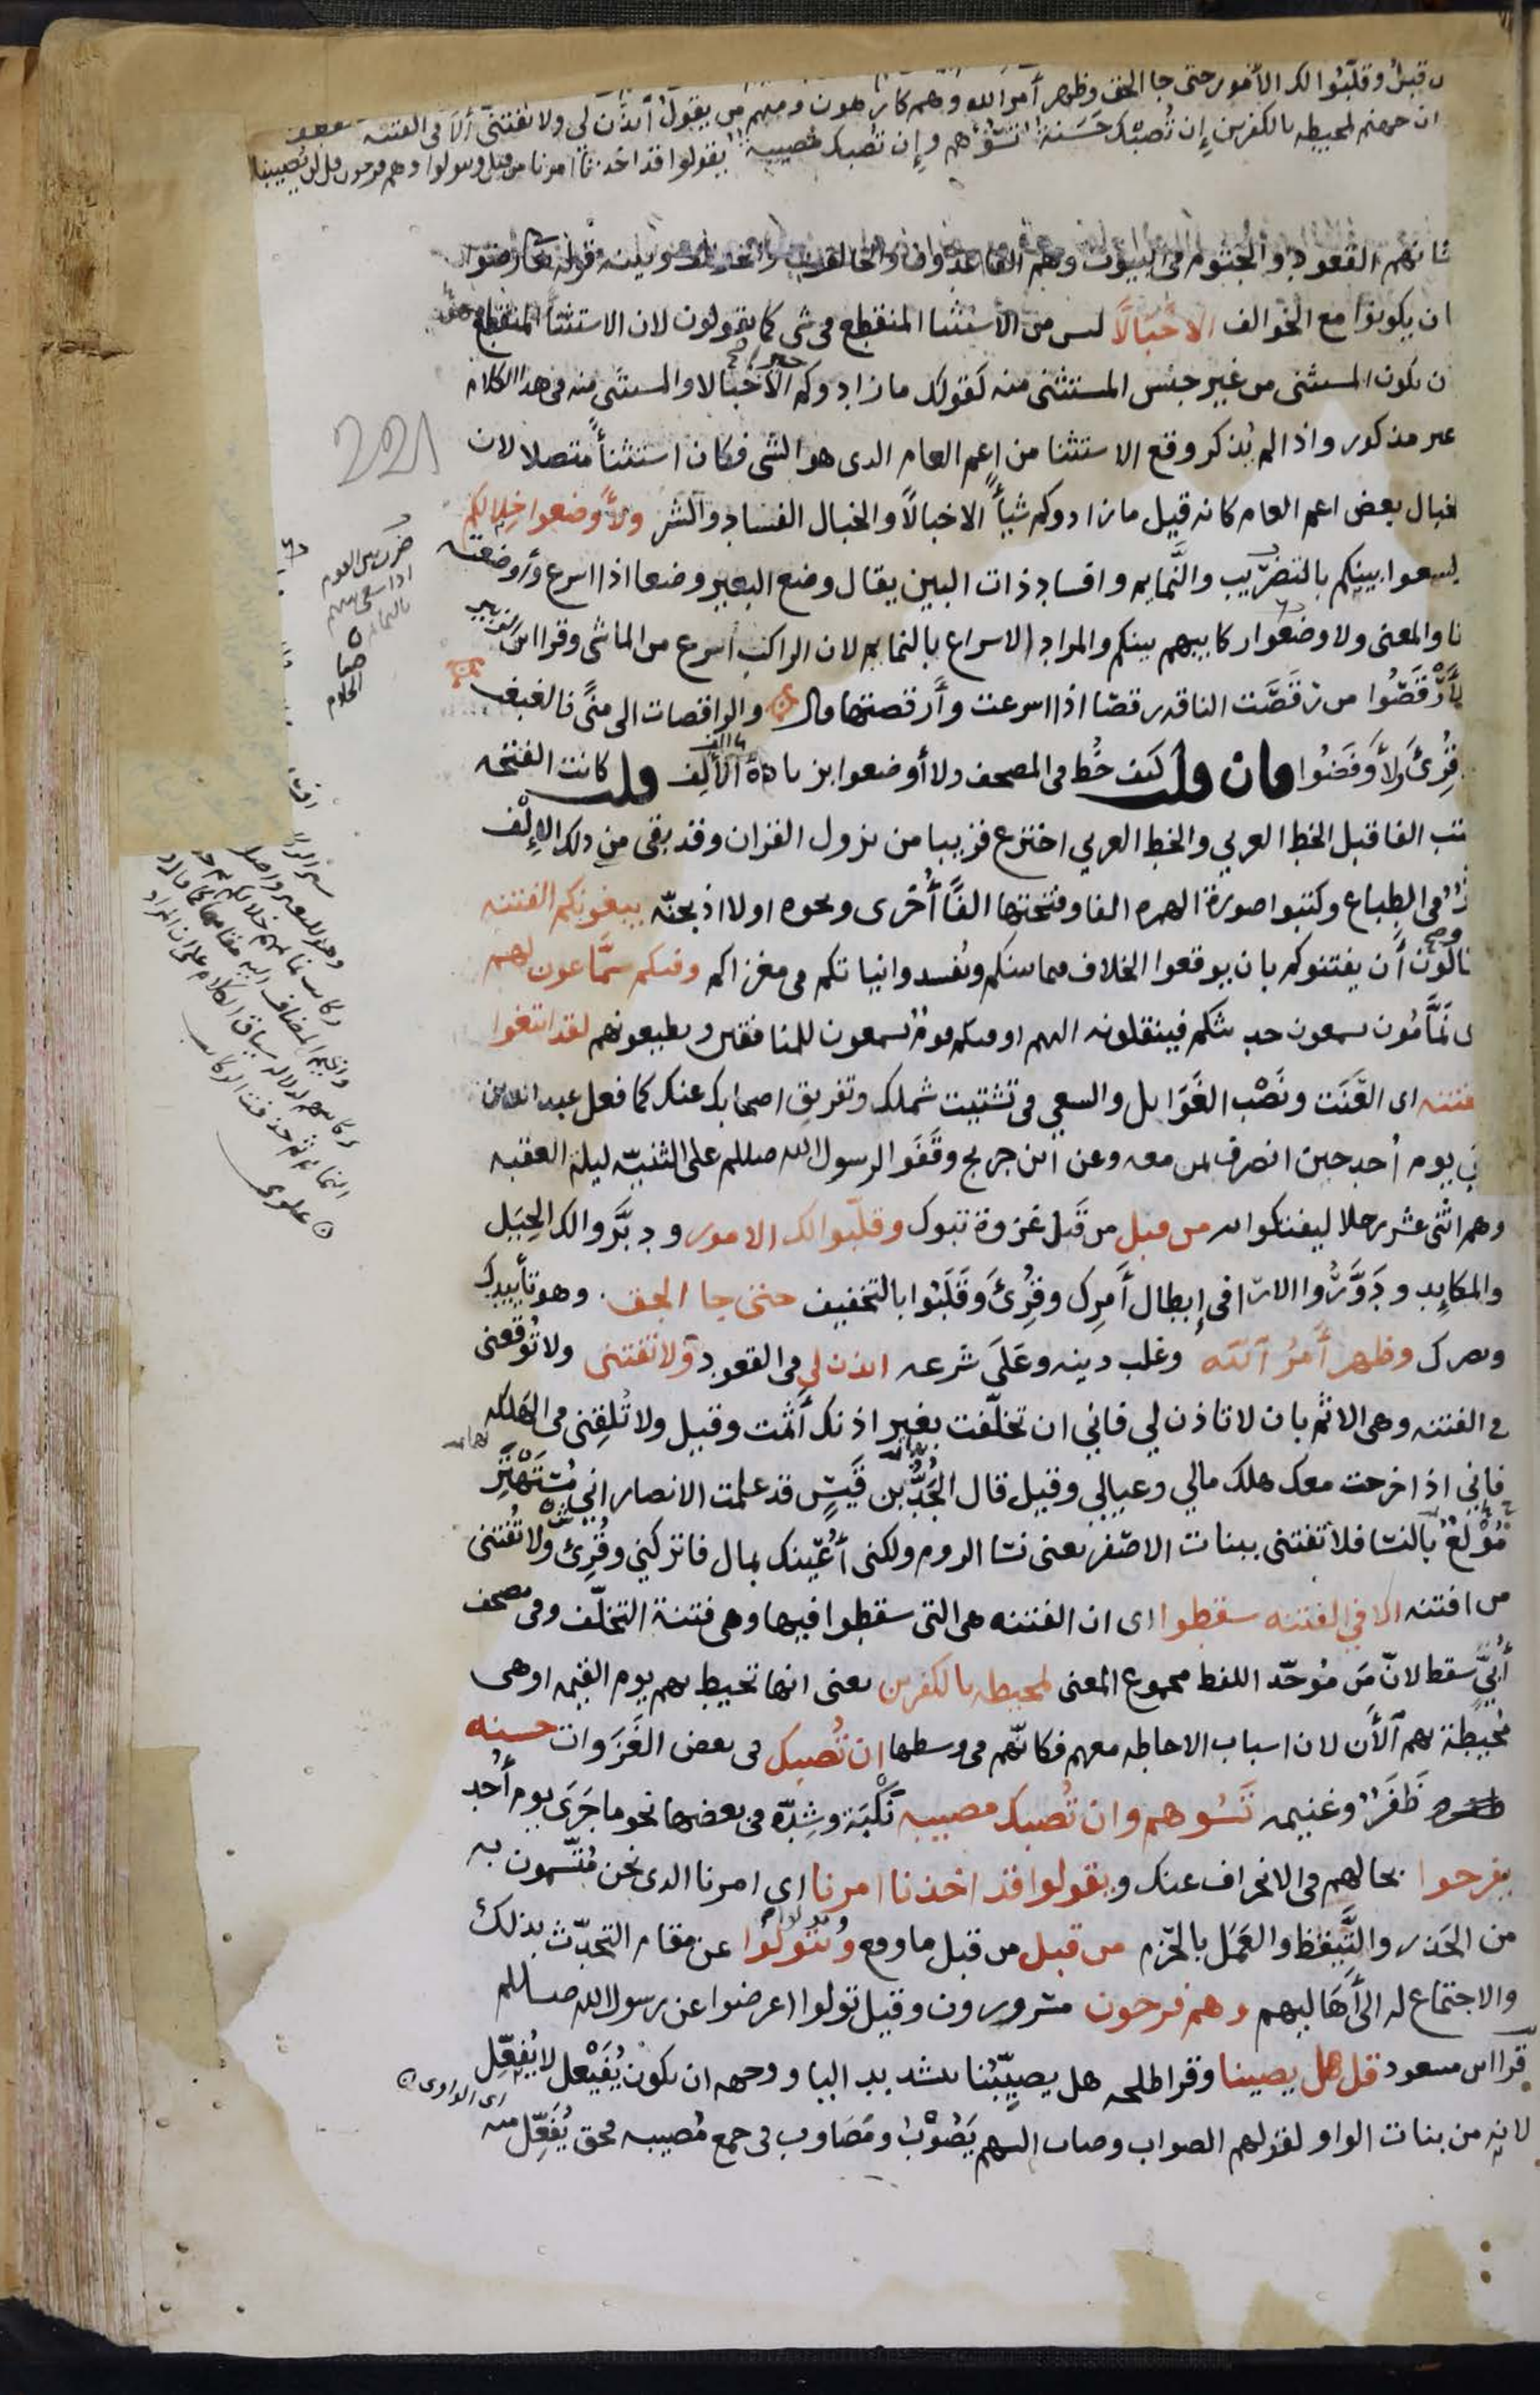 قبل وقلبوا لك الأمور حتى جا الحق وظهر أمر الله وهم كارهون ومنهم من يقول ائذن لى ولا تفتنى ألا فى الفتنه
ان جهنم لمحيطه بالكفرين إن تُصبك حَسَنة تسُؤهم وإن تصبك مُصيبة يقولوا قد اخذنا امرنا من قبل ويتولوا وهم فرحون قل لن يصيبنا
شانهم القعود والجثوم فى البيوت وهم القاعدون والخالفون قوله رضوا
ان يكونوا مع الخوالف الا خبالاً ليس من الاستثنا المنقطع فى شى كما يقولون لان الاستثنا المنقطع هو
ن يكون المستثنى من غير جنس المستثنى منه كقولك ما زادوكم خيرا الا خبالا والمستثنى منه فى هذا الكلام
غير مذكور واذا لم يُذكر وقع الاستثنا من اعم العام الذى هو الشى فكان استثنأً متصلا لان
لخبال بعض اعم العام كانه قيل ما زادوكم شيأً الا خبالاً والخبال الفساد والشر ولأوضعوا خلالكم
ليسعوا بينكم بالتضريب والنَّمايم وافساد ذات البين يقال وضع البعير وضعا اذا اسرع وأوضعته
نا والمعنى ولاوضعوا ركايبهم بينكم والمراد الاسراع بالنمايم لان الراكب أسرع من الماشى وقرا ابن الزبير
لأرقَصُوا من رَقَصَت الناقه رقصا اذا اسرعت وأرقصتها قال والراقصات الى منىً فالغبغب
وقُرئ ولأوفضُوا فان قلت كيف خُط فى المصحف ولا أوضعوا بزيادة الألف قلت كانت الفتحه
تكتب الفا قبل الخط العربي والخط العربي اخترع قريبا من نزول القران وقد بقى من ذلك الإلف
فى الطِباع وكتبوا صورة الهمزه الفا وفتحتها الفًا أُخرى ونحوه اولا اذبحنّه يبغونكم الفتنه
يحاولون أن يفتنوكم بان يوقعوا الخلاف فيما بينكم ويُفسدوا نياتكم فى مغزاكم وفيكم سمَّاعون لهم
اى نَمَّامُون يسمعون حديثكم فينقلونه اليهم او فيكم قوم يُسمعون للمنافقين ويطيعونهم لقد ابتغوا
الفتنه اى العَنَت ونَصْب الغَوايل والسعي فى تشتيت شملك وتفريق اصحابك عنك كما فعل عبد الله بن
أبي يوم أُحد حين انصرف بمن معه وعن ابن جريج وقَفوا لرسول الله صلى الله عليه وسلم على الثنيّه ليلة العقبه
وهم اثنى عشر رجلا ليفتكوا به من قبل من قَبل غزوة تبوك وقلّبوا لك الامور ودبَّروا لك الحِيَل
والمكايِد ودَوَّرُوا الارا فى إبطال أمرك وقُرئ وَقَلَبُوا بالتخفيف حتى جا الحق وهو تأييدك
ونصرك وظهر أمرُ الله وغلب دينه وعَلَى شَرعه ائذن لي فى القعود ولا تفتنى ولا تُوقعنى
فى الفتنه وهى الاثم بان لا تاذن لي فاني ان تخلّفت بغير اذنك أثمت وقيل ولا تُلقِنى فى الهلكه
فانى اذا خرجت معك هلك مالي وعيالي وقيل قال الجَدُّ بن قَيس قد علمت الانصار اني مُستَهتَر
مُوْلعٌ بالنسا فلا تفتنى ببنات الاصفر يعنى نسا الروم ولكنى أُعينك بمال فاتركنى وقُرئ ولا تُفتنى
من افتنه الا في الفتنه سقطوا اى ان الفتنه هى التى سقطوا فيها وهى فتنة التخلّف وفى مصحف
أُبَيّ سقط لانّ مَن مُوحّد اللفظ مجموع المعنى لمحيطه بالكفرين يعنى انها تحيط بهم يوم القيمه او هى
مُحيطة بهم الأن لان اسباب الاحاطه معهم فكانّهم فى وسطها ان تُصبك فى بعض الغَزَوات حسنه
ظَفَرٌ وغنيمه تَسُوهم وان تُصبك مصيبه نَكْبَة وشِدّه فى بعضها نحو ما جَرَى يوم أُحد
يفرحوا بحالهم فى الانحراف عنك ويقولوا قد اخذنا امرنا اى امرنا الذى نحن مُتّسمون به
من الحَذر والتَّيقظ والعَمَل بالحزم من قبل من قبل ما وقع وتتولوا عن مقام التحدّث بذلك
والاجتماع له الى أهاليهم وهم فرحون مسرورون وقيل تولوا اعرضوا عن رسول الله صلى الله عليه وسلم
قرا ابن مسعود قل هل يصيبنا وقرا طلحه هل يصيِّبُنا بتشديد اليا ووجهه ان يكون يُفَيْعِل لا يُفَعِّل
لانه من بنات الواو لقولهم الصواب وصاب السهم يَصُوْبُ ومَصَاوِب فى جمع مُصيبه فحق يُفَعِّل منه
221